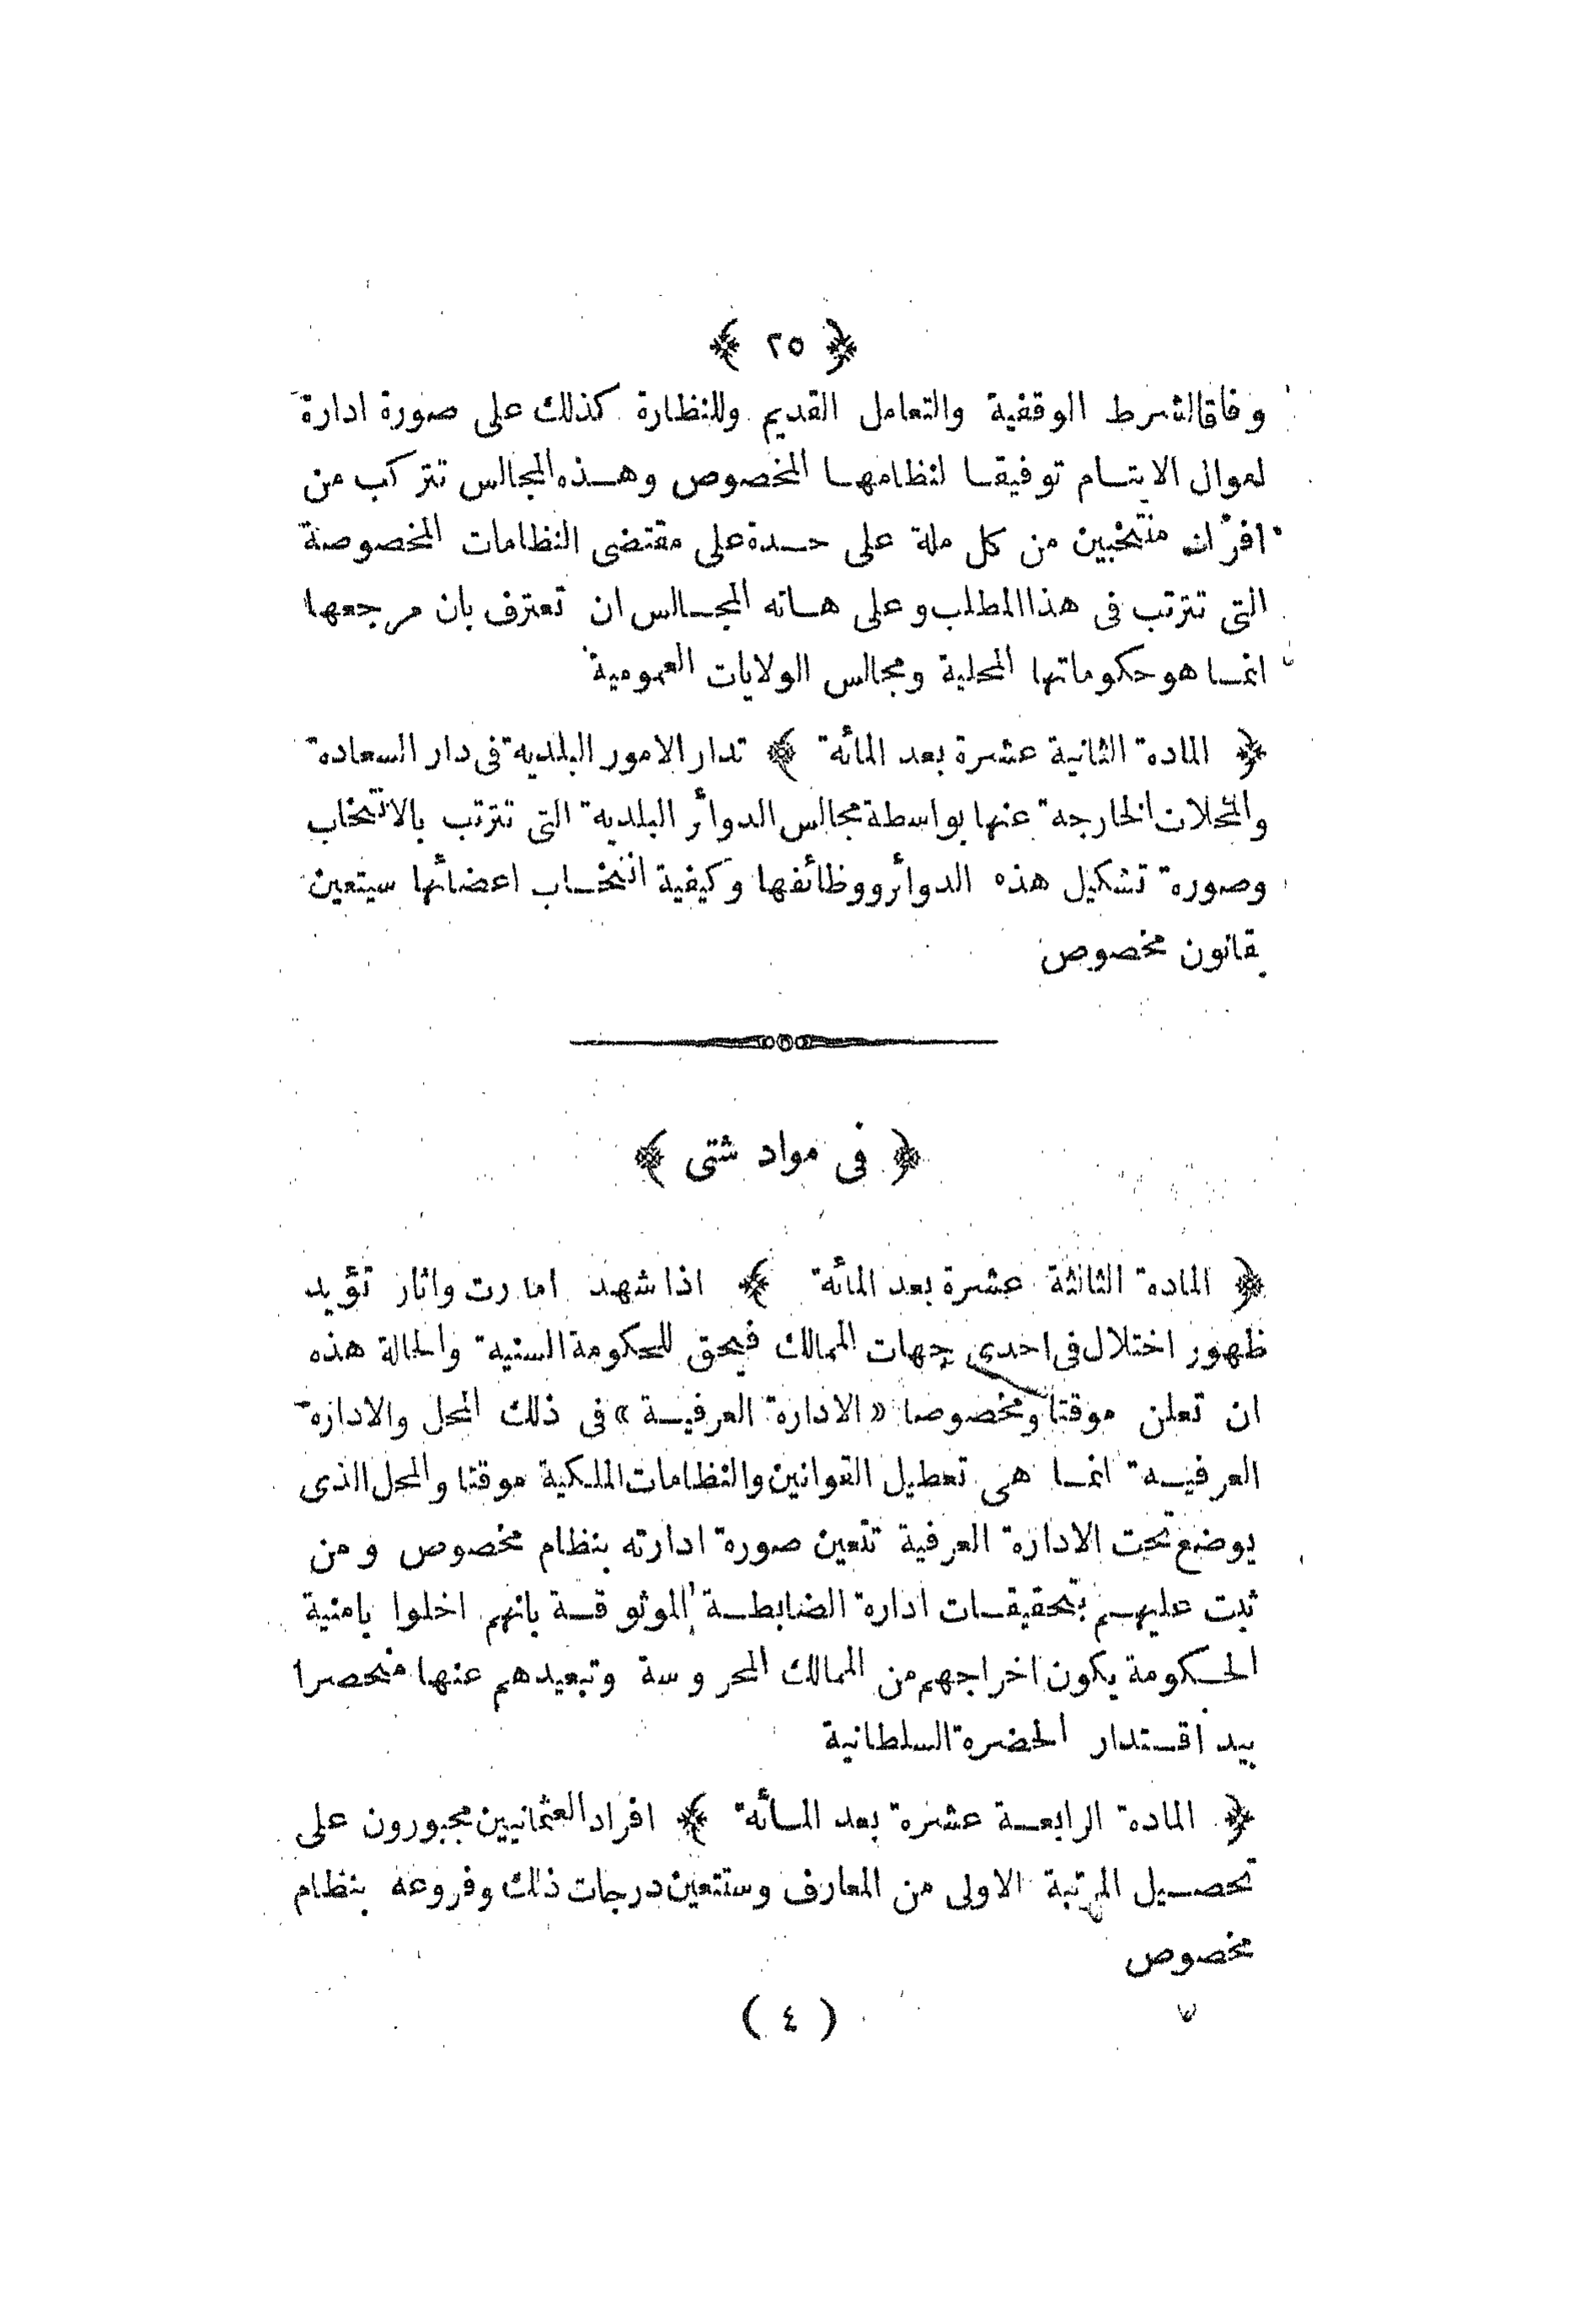 ﴿ ٢٥ ﴾
وفاقا لشرط الوقفية والتعامل القديم وللنظارة كذلك على صورة ادارة
اموال الايتـام توفيقـا لنظامهـا المخصوص وهـذه المجالس تتركب من
افراد منتخبين من كل ملة على حـدة على مقتضى النظامات المخصوصة
التى تترتب فى هذا المطلب وعلى هـاته المجـالس ان تعترف بان مرجعها
انمـا هو حكوماتها المحلية ومجالس الولايات العمومية
﴿ المادة الثانية عشرة بعد المائة ﴾ تدار الامور البلدية فى دار السعادة
والمحلات الخارجة عنها بواسطة مجالس الدوائر البلدية التى تترتب بالانتخاب
وصورة تشكيل هذه الدوائر ووظائفها وكيفية انتخـاب اعضائها سيتعين
بقانون مخصوص
﴿ فى مواد شتى ﴾
﴿ المادة الثالثة عشرة بعد المائة ﴾ اذا شهد امارت واثار تؤيد
ظهور اختلال فى احدى جهات الممالك فيحق للحكومة السنية والحالة هذه
ان تعلن موقتا ومخصوصا «الادارة العرفيـة» فى ذلك المحل والادارة
العرفيـة انمـا هى تعطيل القوانين والنظامات الملكية موقتا والمحل الذى
يوضع تحت الادارة العرفية تتعين صورة ادارته بنظام مخصوص ومن
ثبت عليهـم بتحقيقـات ادارة الضابطـة الموثوقـة بانهم اخلوا بامنية
الحـكومة يكون اخراجهم من الممالك المحروسة وتبعيدهم عنها منحصرا
بيد اقـتدار الحضرة السلطانية
﴿ المادة الرابعـة عشرة بعد المـائة ﴾ افراد العثمانيين مجبورون على
تحصـيل المرتبة الاولى من المعارف وستتعين درجات ذلك وفروعه بنظام
مخصوص
( ٤ )